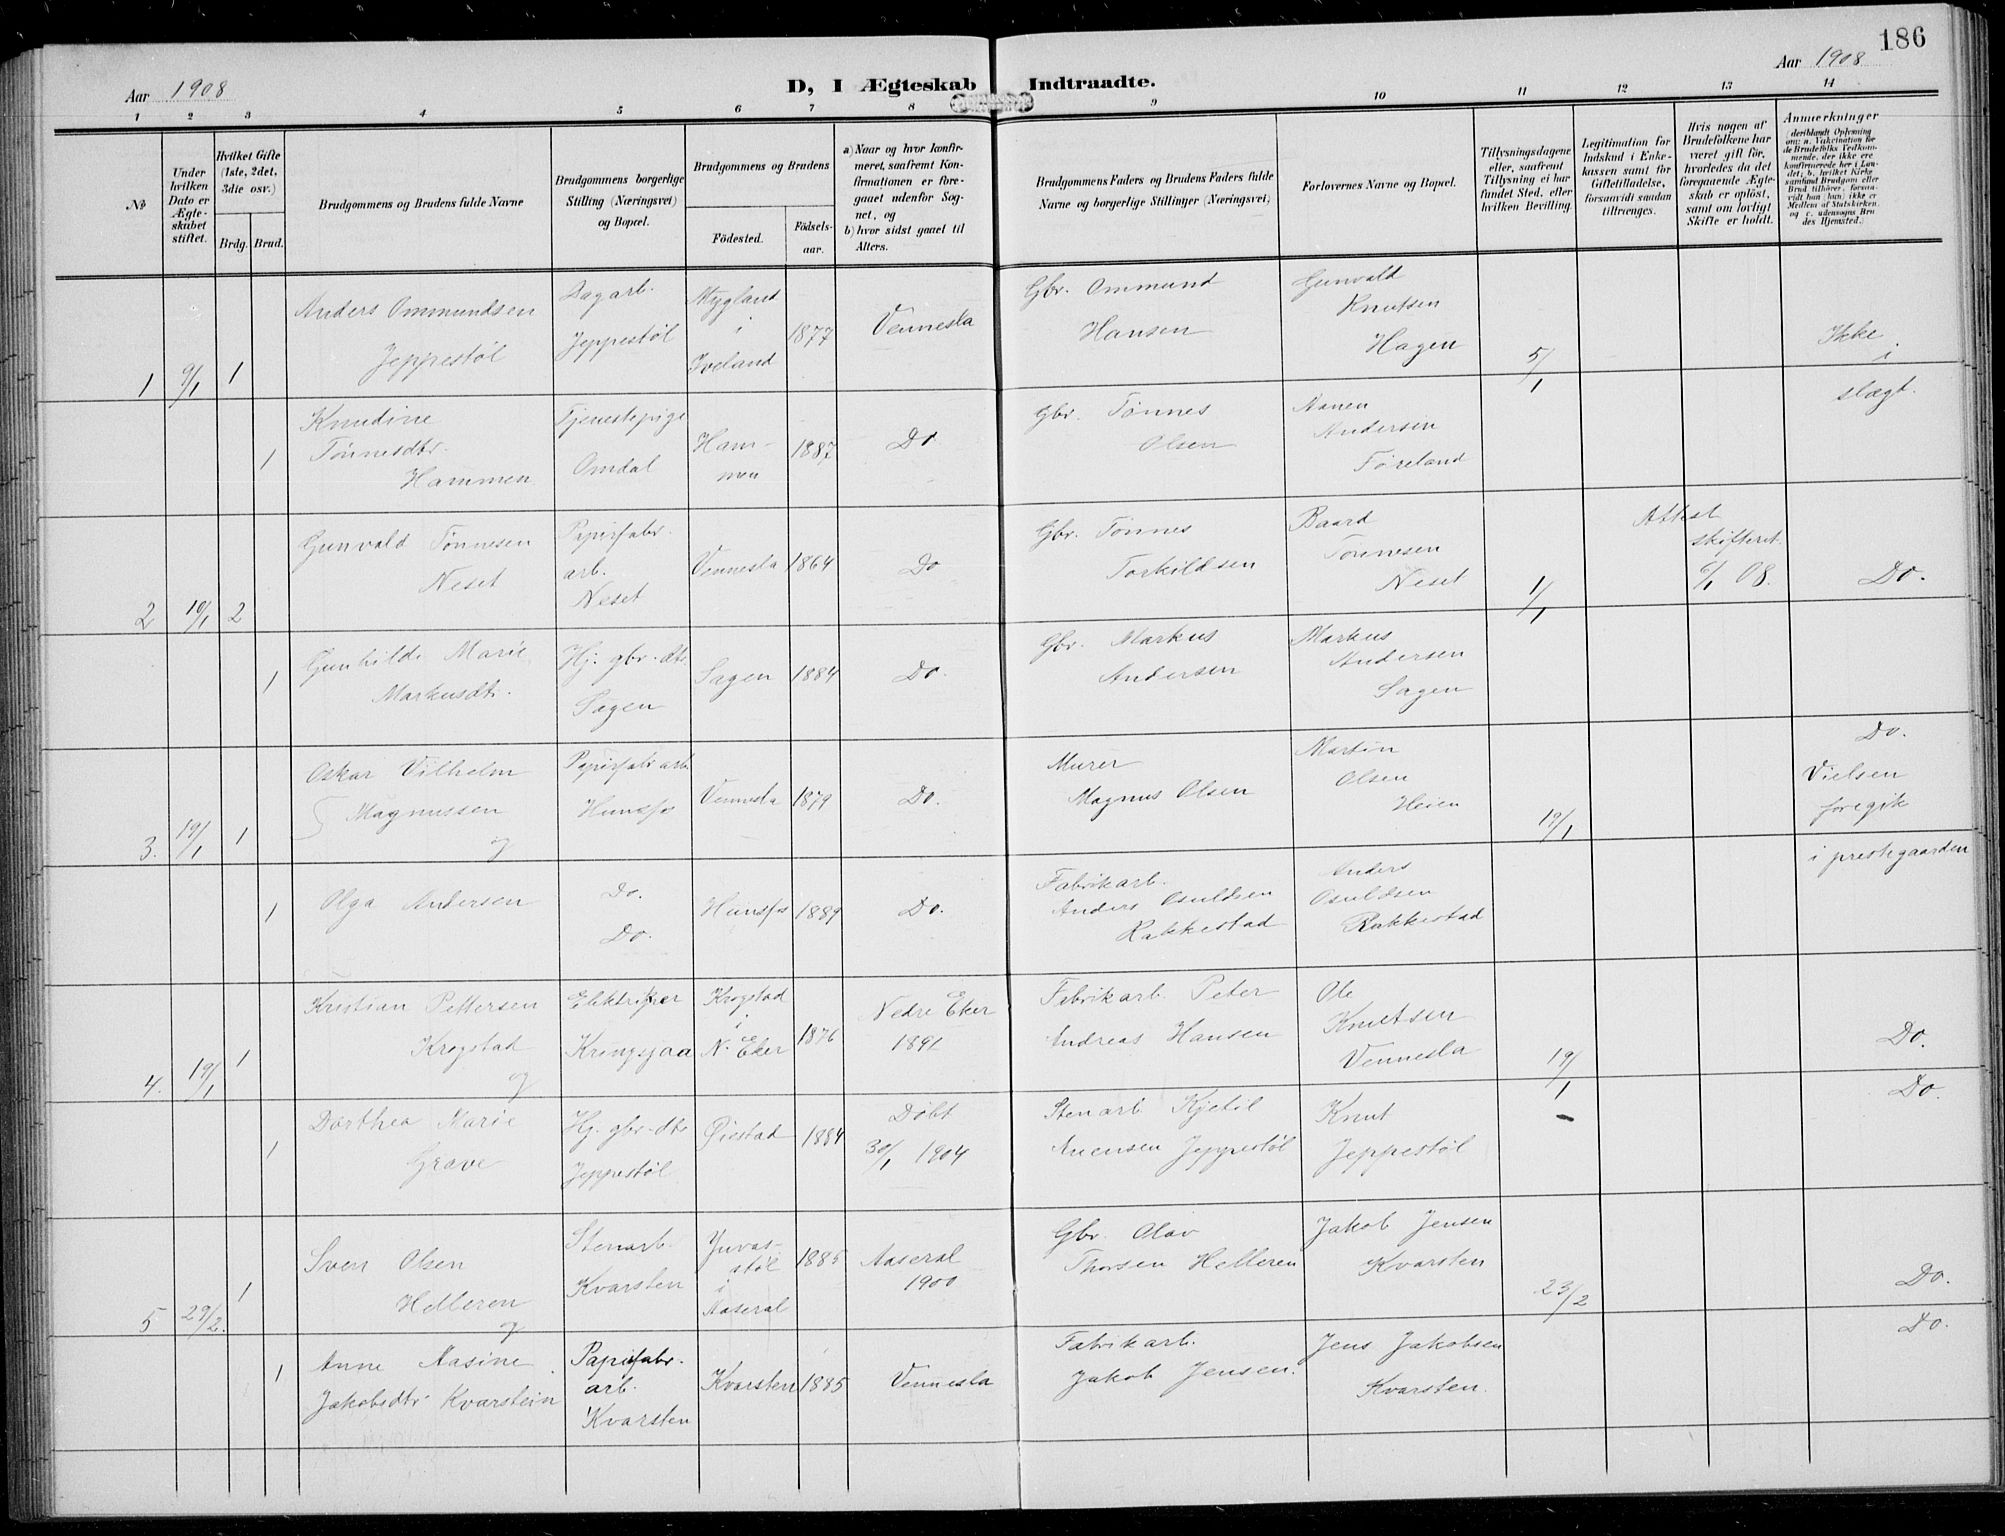 186
Aar 1908
D, I Ægteskab Indtraadte.
Aar 1908
1 2 3 4 5 6 7 8 9 10 11 12 13 14
No
Under hvilken Dato er Ægteskabet stiftet.
Hvilket Gifte (1ste, 2det, 3die osv.)
Brdg. Brud.
Brudgommens og Brudens fulde Navne
Brudgommens borgerlige Stilling (Næringsvei) og Bopæl.
Brudgommens og Brudens
Fødested.
Fødsels-aar.
a) Naar og hvor konfirmeret, saafremt Konfirmationen er foregaaet udenfor Sognet, og
b) hvor sidst gaaet til Alters.
Brudgommens Faders og Brudens Faders fulde Navne og borgerlige Stillinger (Næringsvei)
Forlovernes Navne og Bopæl.
Tillysningsdagene eller, saafremt Tillysning ei har fundet Sted, efter hvilken Bevilling.
Legitimation for Indskud i Enkekassen samt for Giftetilladelse, forsaavidt saadan tiltrænges.
Hvis nogen af Brudefolkene har været gift før, hvorledes da det foregaaende Ægteskab er opløst, samt om lovligt Skifte er holdt.
Anmerkninger
(deriblandt Oplysning om: a. Vakcination for de Brudefolks Vedkommende, der ikke ere konfirmerede her i Landet; b. hvilket Kirkesamfund Brudgom eller Brud tilhører, forsaavidt han (hun) ikke er Medlem af Statskirken, og c. udensogns Brudes Hjemsted.)
1 9/1 1
Anders Ommundsen
Jeppestøl
Dagarb.
Jeppestøl
Mygland
i
Iveland
1877
Vennesla
Gbr. Ommund
Hansen
Gunvald
Knutsen
Hagen
5/1
Ikke
i
slægt.
1
Knudine
Tønnesdtr.
Hammen
Tjenestepige
Omdal
Ham-
men
1887
Do
Gbr. Tønnes
Olsen
Aanen
Andersen
Føreland
2 19/1 2
Gunvald Tønnesen
Neset
Papirfabr.
arb.
Neset
Vennesla
1864
Do
Gbr. Tønnes
Torkildsen
Baard
Tønnesen
Neset
1/1
Attest
skifteret
6/1 08.
Do.
1
Gunhilde Marie
Markusdt.
Hj. gbr-dtr
Sagen
Sagen
1884
Do.
Gbr. Markus
Andersen
Markus
Andersen
Sagen
3. 19/1 1
Oskar Vilhelm
Magnussen
og
Papirfabr arb.
Hunsfos
Vennesla
1879
Do.
Murer
Magnus Olsen
Martin
Olsen
Heien
19/1
Do.
Vielsen
foregik
i prestegaarden
1
Olga Andersen
Do.
Do.
Hunsfos
1889
Do.
Fabrikarb.
Anders Osuldsen
Rakkestad
Anders
Osuldsen
Rakkestad
4. 19/1 1
Kristian Pettersen
Krogstad
og
Elektriker
Kringsjaa
Krogstad
i
N. Eker
1876
Nedre Eker
1891
Fabrikarb. Peter
Andreas Hansen
Ole
Knutsen
Vennesla
19/1
Do.
1
Dorthea Marie
Grave
Hj. gbr-dtr
Jeppestøl
Øiestad
1884
Døbt
30/1 1904
Stenarb Kjetil
Anensen Jeppestøl
Knut
Jeppestøl
-
Do.
5 29/2. 1
Sven Olsen
Helleren
og
Stenarb.
Kvarsten
Juvas-
støl
i
Aaseral
1885
Aaseral
1900
Gbr. Olav
Thorsen Helleren
Jakob Jensen
Kvarsten
23/2
Do.
1
Anne Aasine
Jakobsdtr Kvarstein
Papirfabr.
arb.
Kvarsten
Kvarsten
1885
Vennesla
Fabrikarb.
Jakob Jensen.
Jens Jakobsen
Kvarsten.
Do.